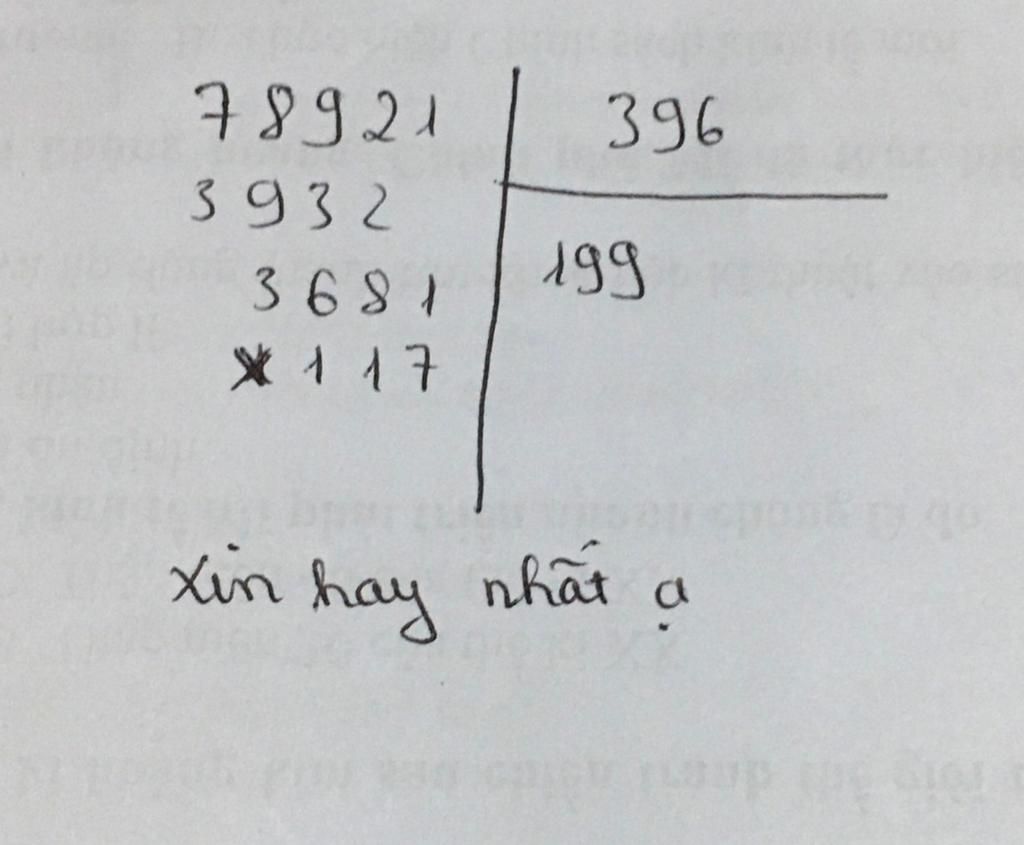 78921 396
3932
199
3681
117
xin hay nhất ạ